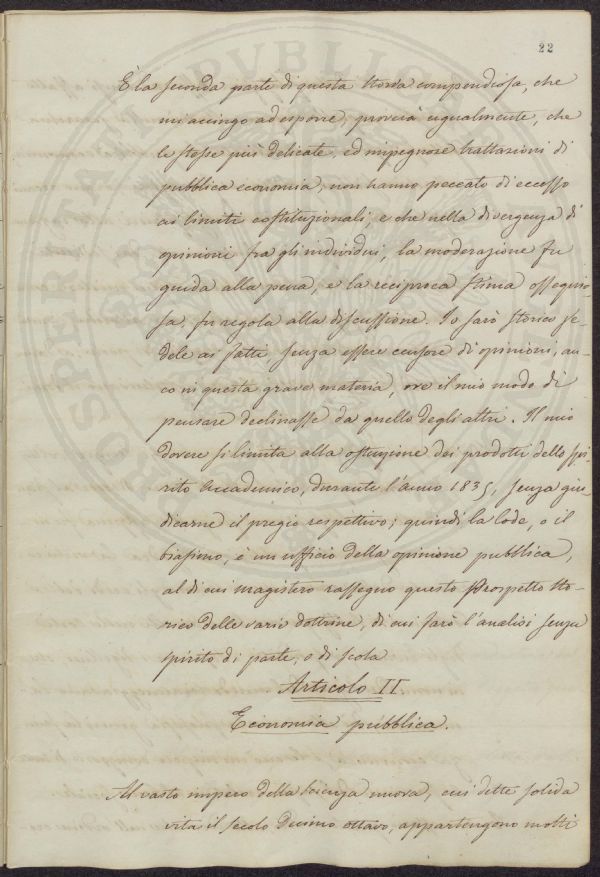 22
È la seconda parte di questa storia compendiosa, che
mi accingo ad esporre, proverà egualmente, che
le stesse più delicate, ed impegnose trattazioni di
pubblica economia, non hanno peccato di eccesso
ai limiti costituzionali, e che nella divergenza di
opinioni fra gli individui, la moderazione fu
guida alla penna, e la reciproca stima ossequio-
sa, fu regola alla discussione. Io sarò storico fe-
dele ai fatti, senza essere censore di opinioni, an-
co in questa grave materia, ove il mio modo di
pensare declinasse da quello degli altri. Il mio
dovere si limita alla ostensione dei prodotti dello spi-
rito Accademico, durante l'anno 1835, senza giu-
dicarne il pregio respettivo; quindi la lode, o il
biasimo, è un ufficio della opinione pubblica,
al di cui magistero rassegno questo Prospetto sto-
rico delle varie dottrine, di cui farò l'analisi senza
spirito di parte, o di scola
Articolo II.
Economia pubblica.
Al vasto impero della scienza nuova, cui dette solida
vita il secolo Decimo ottavo, appartengono molti
PROSPERITATI PUBLICAE